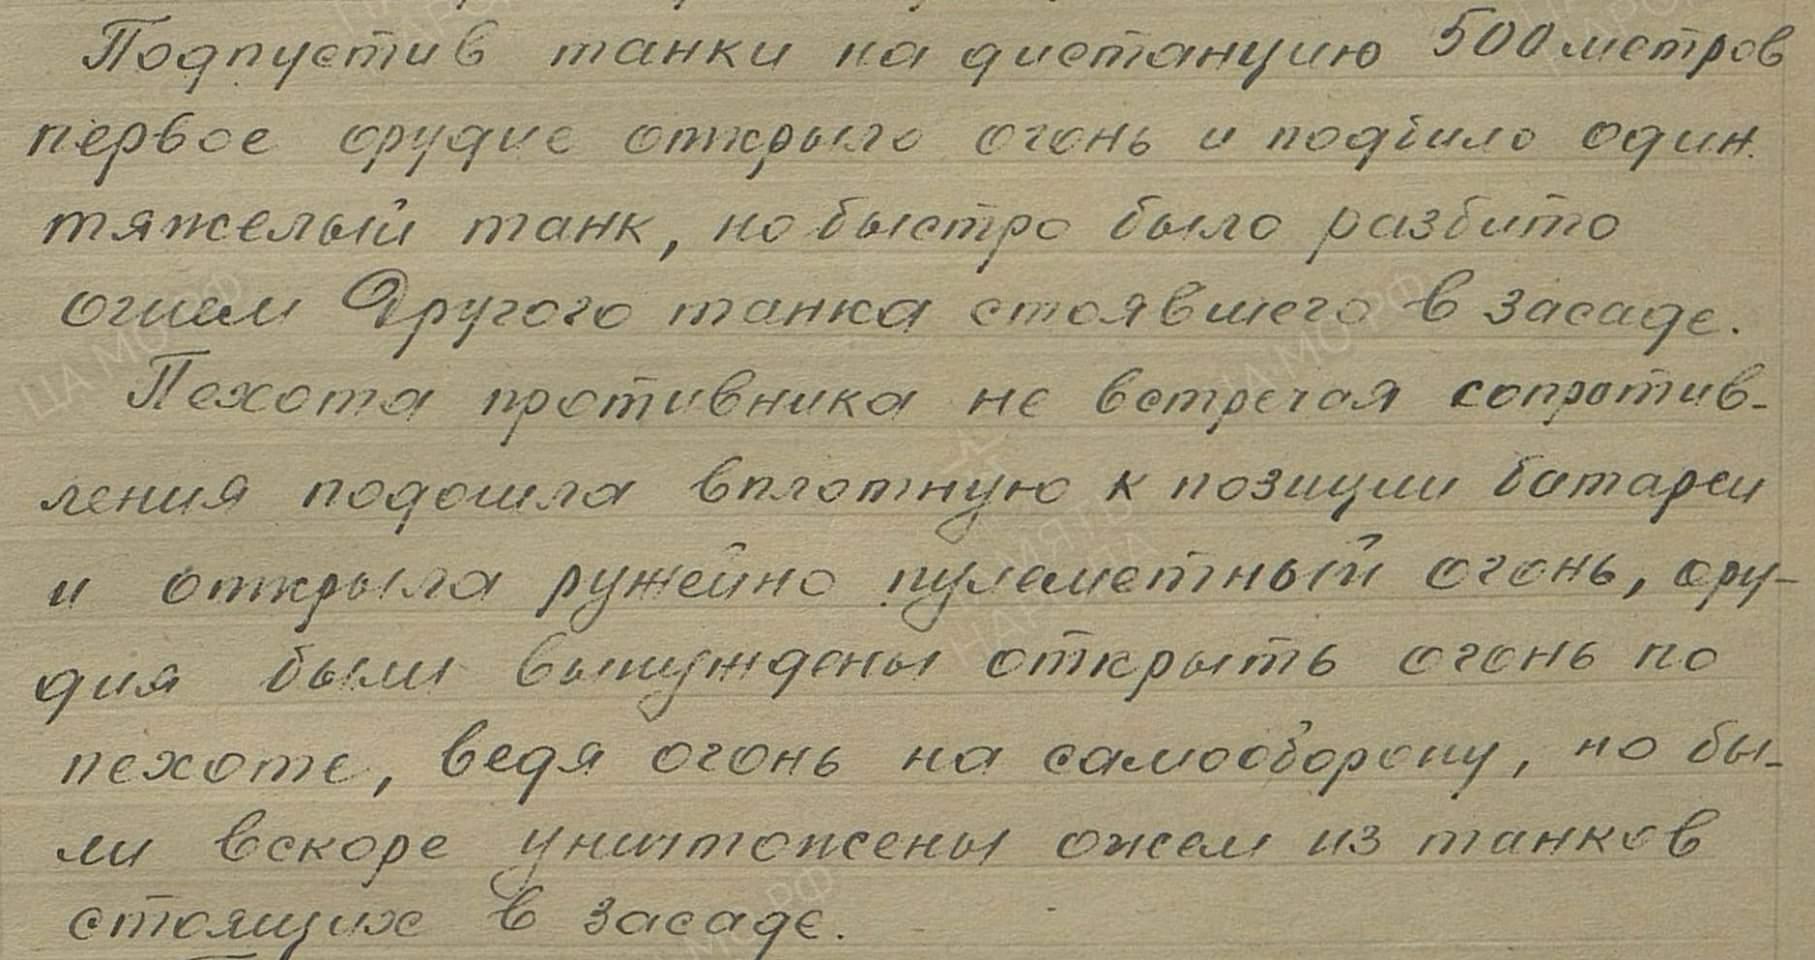 Подпустив танки на дистанцию 500 метров
первое орудие открыло огонь и подбило один
тяжелый танк, но быстро было разбито
огнем Другого танка стоявшего в засаде.
Пехота противника не встречая сопротив-
ления подошла вплотную к позиции батареи
и открыла ружейно пулеметный огонь, ору-
дия были вынуждены открыть огонь по
пехоте, ведя огонь на самооборону, но бы-
ли вскоре уничтожены из танков
стоящих в засаде.